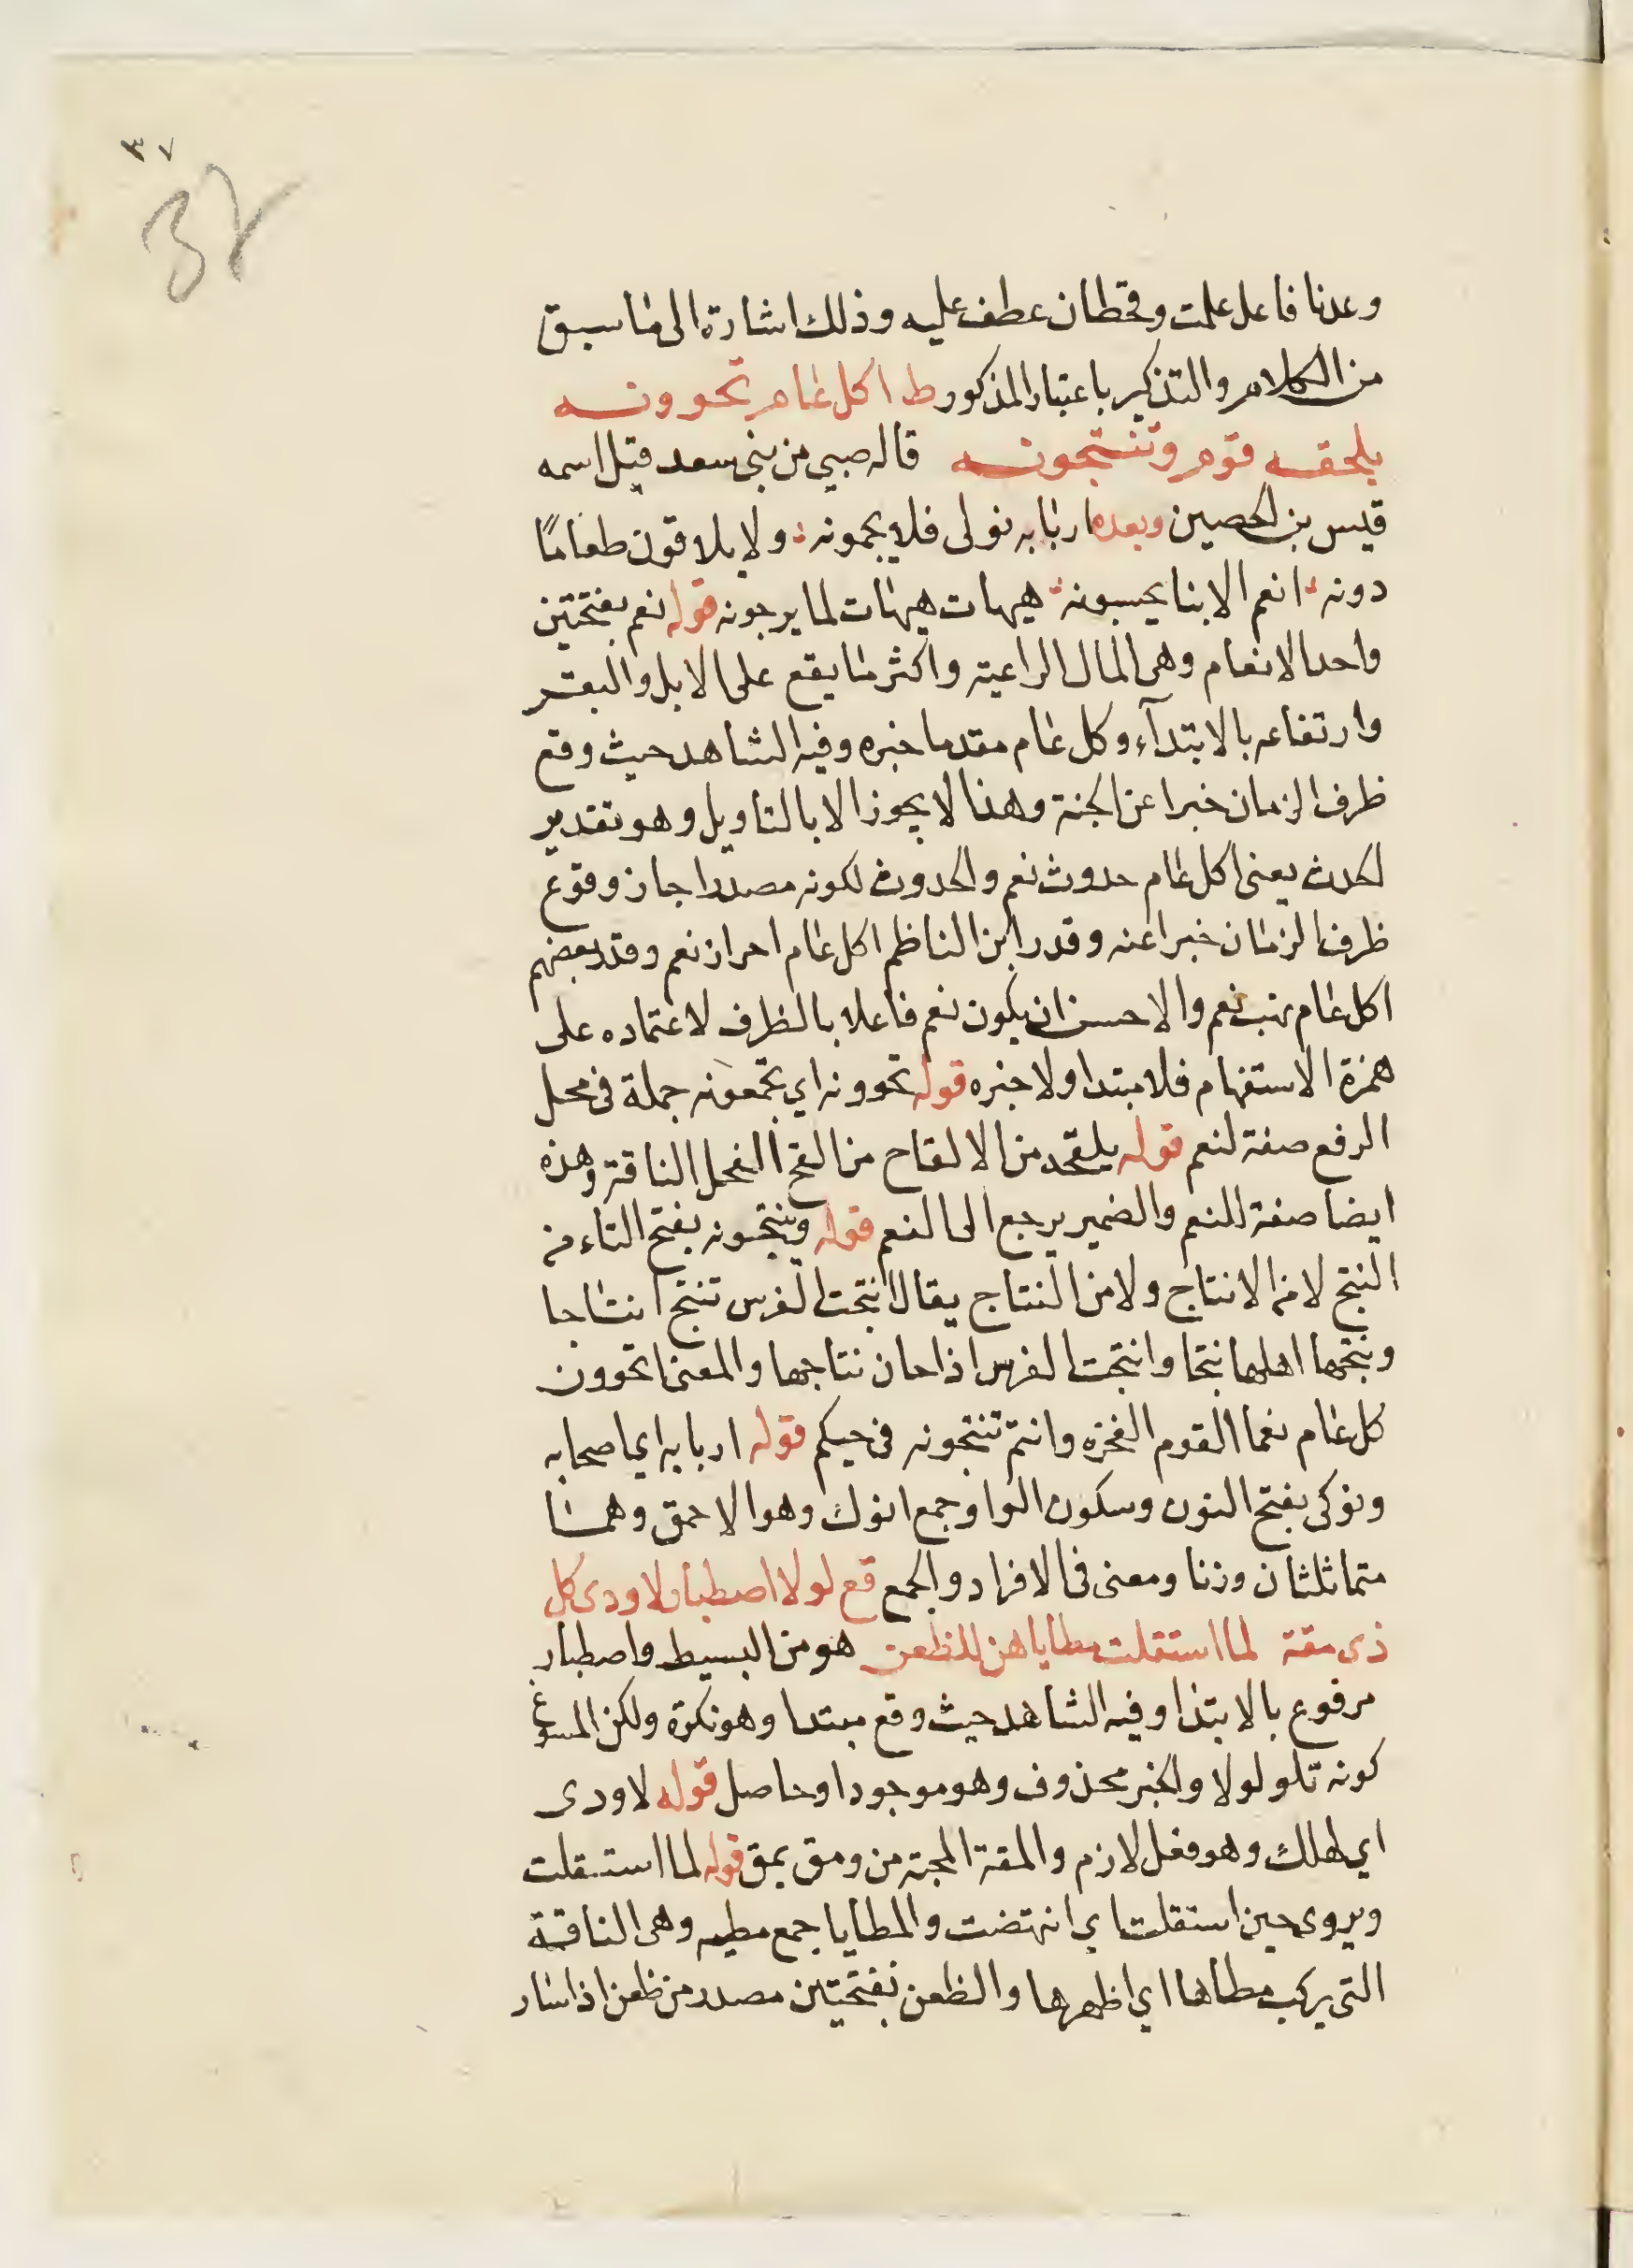 ٣٧
37
وعدنا فاعل علمت وقحطان عطف عليه وذلك اشارة الى ما سبق
من الكلام والتذكير باعتبار المذكور ط اكل عام تحوونه
يلحقه قوم وتنتجونه قاله صبي من بني سعد قيل اسمه
قيس بن الحصين وبعده اربابه نوكى فلا يحمونه ولا يلاقون طعاما
دونه انعم الابنا يحسبونه هيهات هيهات لما يرجونه قوله نعم بفتحتين
واحد الانعام وهي المال الراعية واكثر ما يقع على الابل والبقر
وارتفاعه بالابتدآء وكل عام مقدما خبره وفيه الشاهد حيث وقع
ظرف الزمان خبرا عن الجثة وهذا لا يجوز الا بالتاويل وهو تقدير
الحدث يعني اكل عام حدوث نعم والحدوث لكونه مصدرا جاز وقوع
ظرف الزمان خبرا عنه وقدر ابن الناظم اكل عام احراز نعم وقدر بعضهم
اكل عام نهب نعم والاحسن ان يكون نعم فاعلا بالظرف لاعتماده على
همزة الاستفهام فلا مبتدا ولا خبره قوله تحوونه اي تجمعونه جملة في محل
الرفع صفة لنعم قوله يلقحه من الالقاح من القح الفحل الناقة وهذه
ايضا صفة للنعم والضمير يرجع الى النعم قوله وتنتجونه بفتح التاء من
النتج لا من الانتاج ولا من النتاج يقال انتجت الفرس تنتج انتاجا
ونتجها اهلها نتجا وانتجت الفرس اذا حان نتاجها والمعنى اتحوون
كل عام نعما القوم الفحزه وانتم تنتجونه في حيكم قوله اربابه اي اصحابه
ونوكى بفتح النون وسكون الواو جمع انوك وهو الاحمق وهما
متماثلثان وزنا ومعنى في الافراد والجمع قع لولا اصطبار لاودى كل
ذى مقة لما استقلت مطاياهن للظعن هو من البسيط واصطبار
مرفوع بالابتدا وفيه الشاهد حيث وقع مبتدا وهو نكرة ولكن المسوغ
كونه تلو لولا والخبر محذوف وهو موجود او حاصل قوله لاودى
اي لهلك وهو فعل لازم والمقة المحبة من ومق يمق قوله لما استقلت
ويروى حين استقلت اي انتهضت والمطايا جمع مطيه وهي الناقة
التي يركب مطاها اي ظهرها والظعن بفتحتين مصدر من ظعن اذا سار